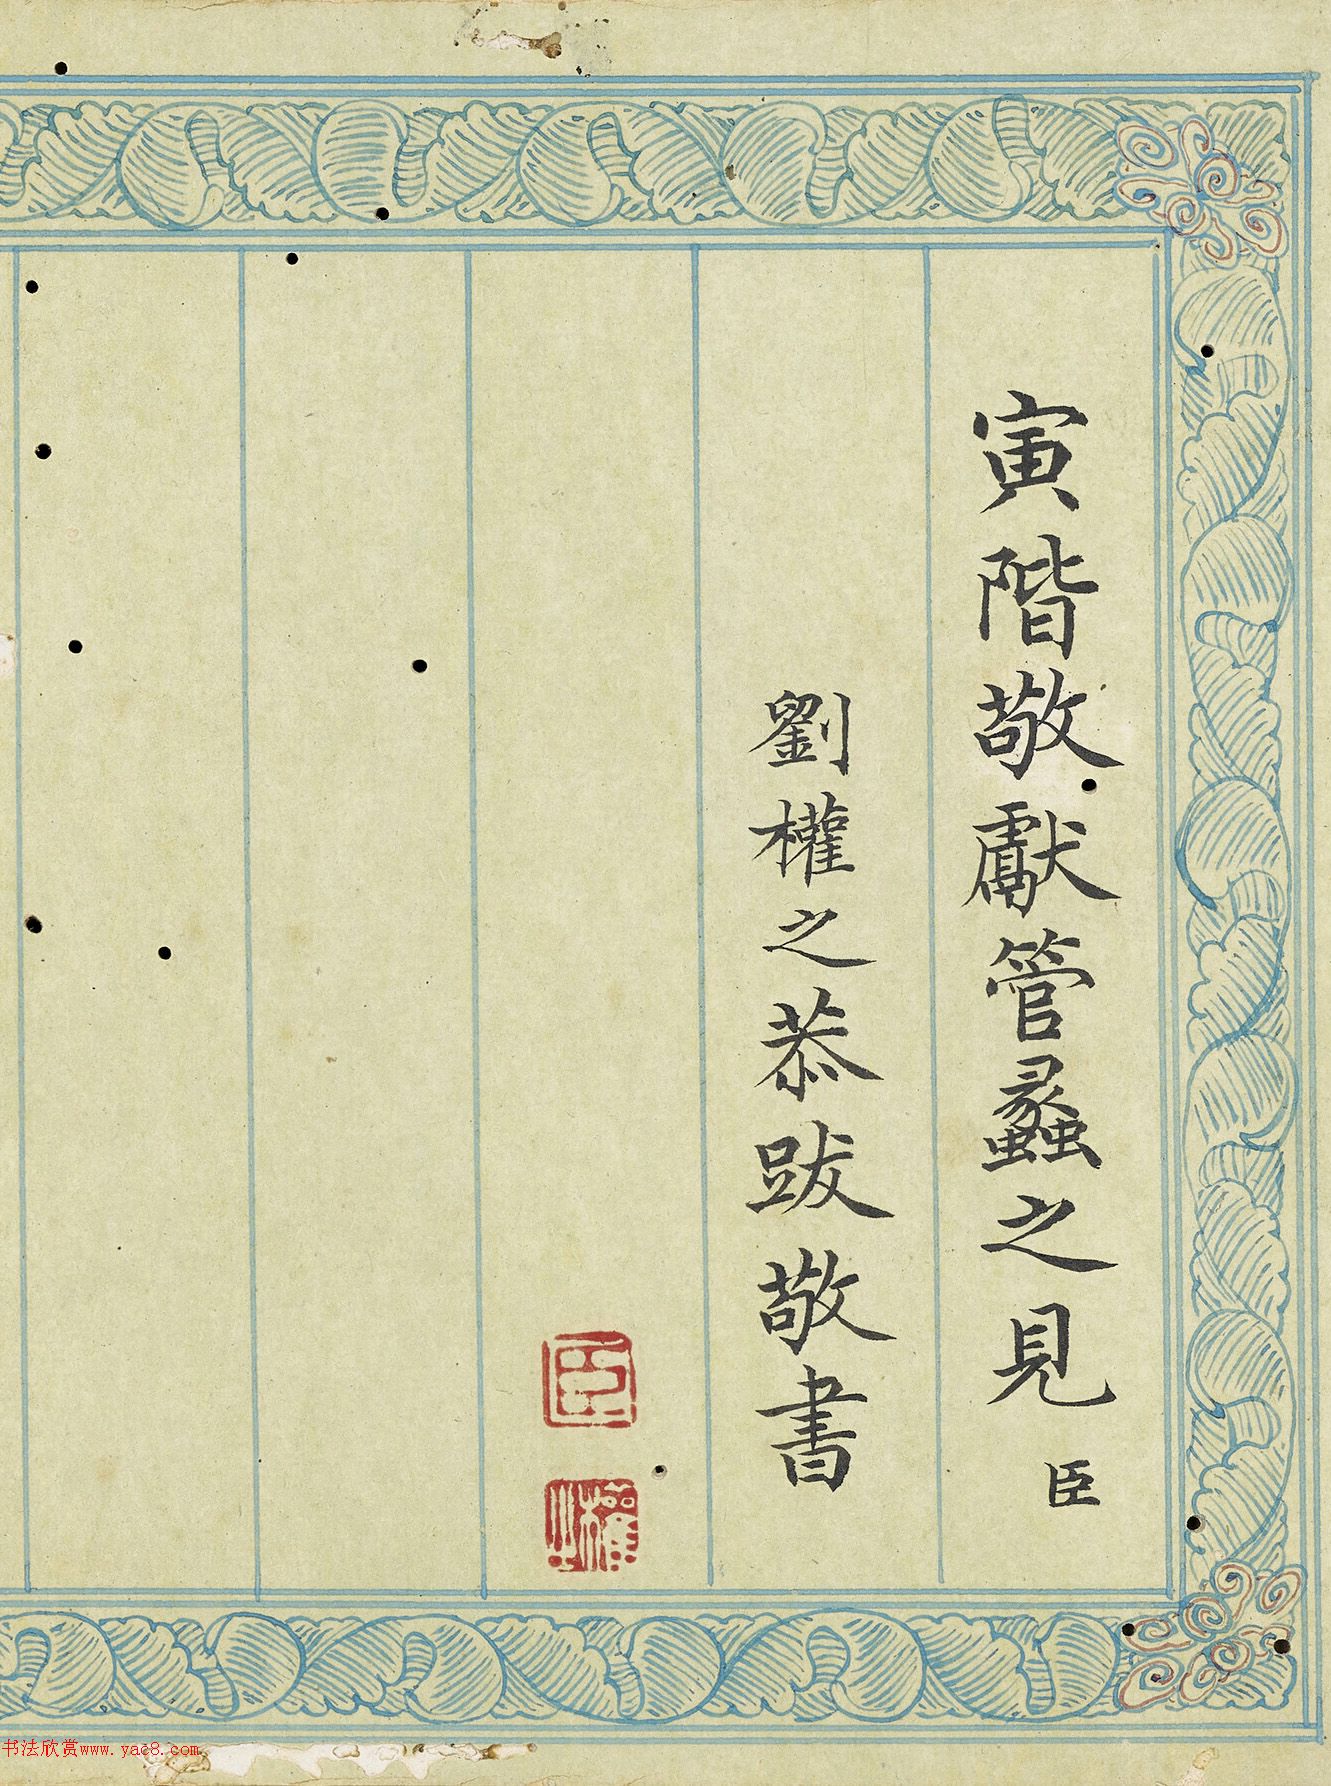 寅階敬獻管蠡之見臣
劉權之恭跋敬書
臣
權之
书法欣赏www.yac8.com